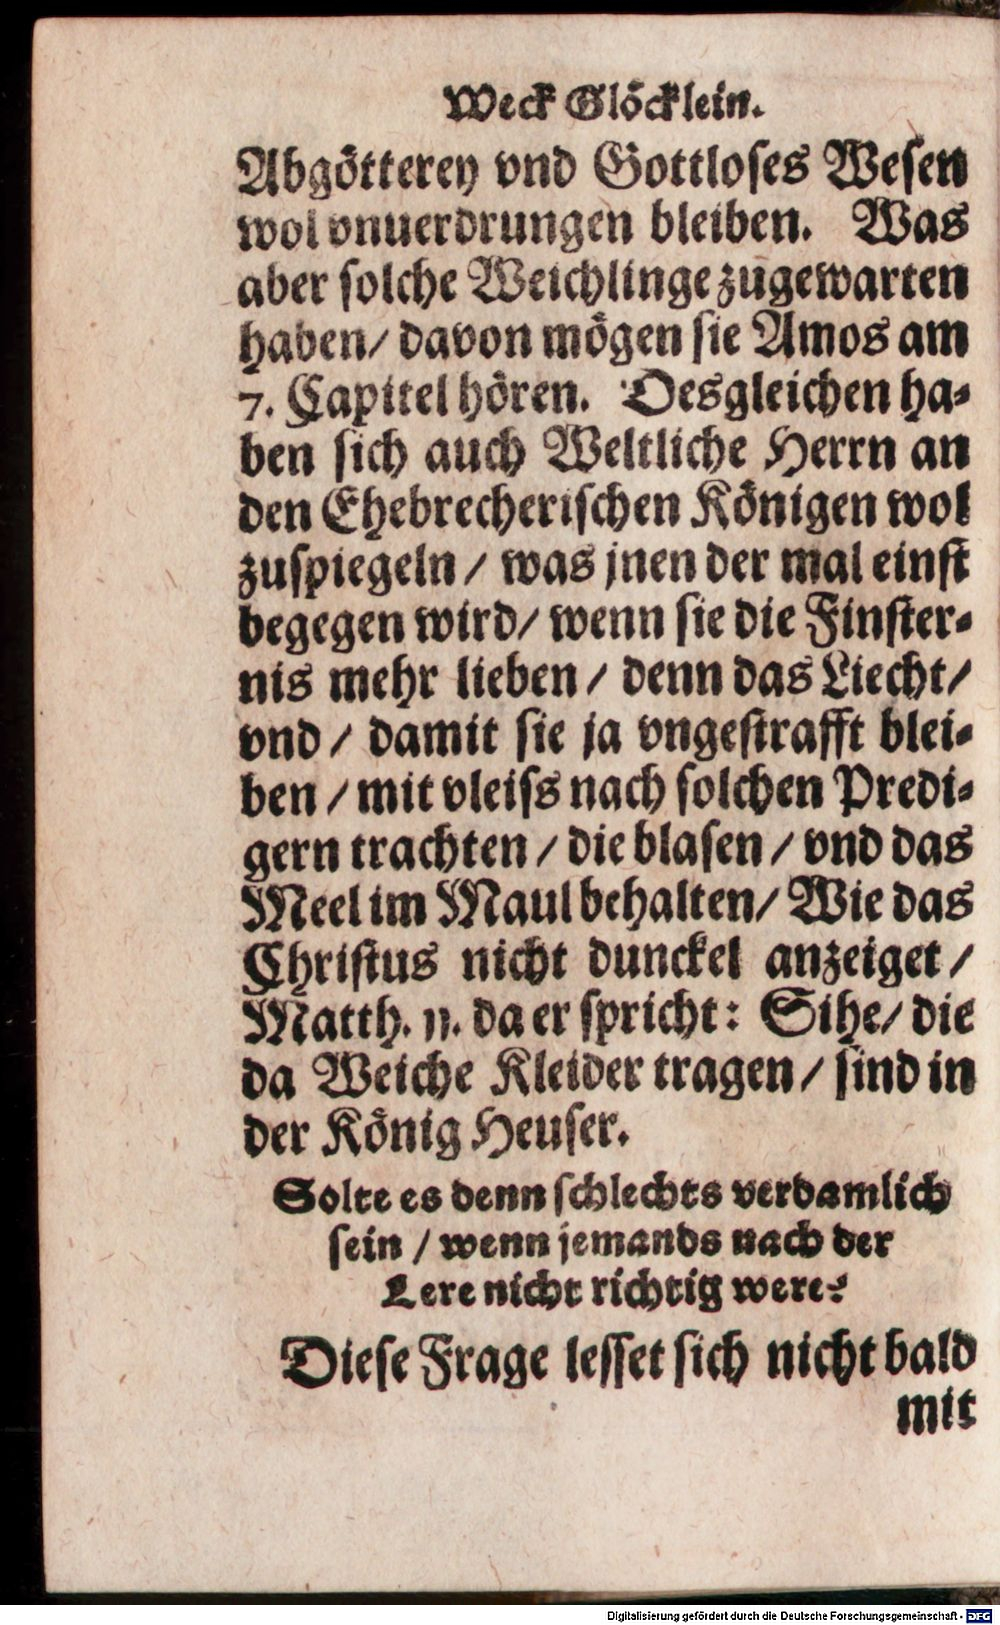 Weck Glöcklein.
Abgötterey vnd Gottloses Wesen
wol vnuerdrungen bleiben. Was
aber solche Weichlinge zugewarten
haben/ davon mögen sie Amos am
7. Capitel hören. Desgleichen ha-
ben sich auch Weltliche Herrn an
den Ehebrecherischen Königen wol
zuspiegeln / was jnen der mal einst
begegen wird/ wenn sie die Finster-
nis mehr lieben / denn das Liecht/
vnd / damit sie ja vngestrafft blei-
ben / mit vleiss nach solchen Predi-
gern trachten / die blasen / vnd das
Meel im Maul behalten/ Wie das
Christus nicht dunckel anzeiget /
Matth. 11. da er spricht: Sihe/ die
da Weiche Kleider tragen / sind in
der König Heuser.
Solte es denn schlechts verdamlich
sein / wenn jemands nach der
Lere nicht richtig were?
Diese Frage lesset sich nicht bald
mit
Digitalisierung gefördert durch die Deutsche Forschungsgemeinschaft - DFG